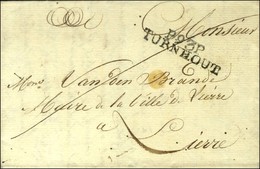 Monsieur
P93P
TURNHOUT
Monsr Van den Brande
Maire de la Ville de Lierre
a Lierre